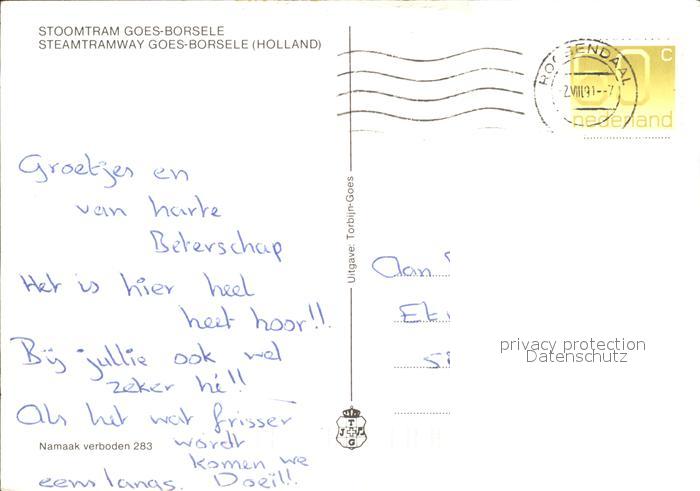 STOOMTRAM GOES-BORSELE
STEAMTRAMWAY GOES-BORSELE (HOLLAND)
ROOSENDAAL
-2.VIII.91.--7
60 c
nederland
Groetjes en
van harte
Beterschap
Het is hier heel
heet hoor!!.
Bij jullie ook wel
zeker hè!!
Als het wat frisser
wordt
komen we
eens langs. Doeii!!.
Namaak verboden 283
Uitgave: Torbijn-Goes
T
J G
Aan
privacy protection
Datenschutz